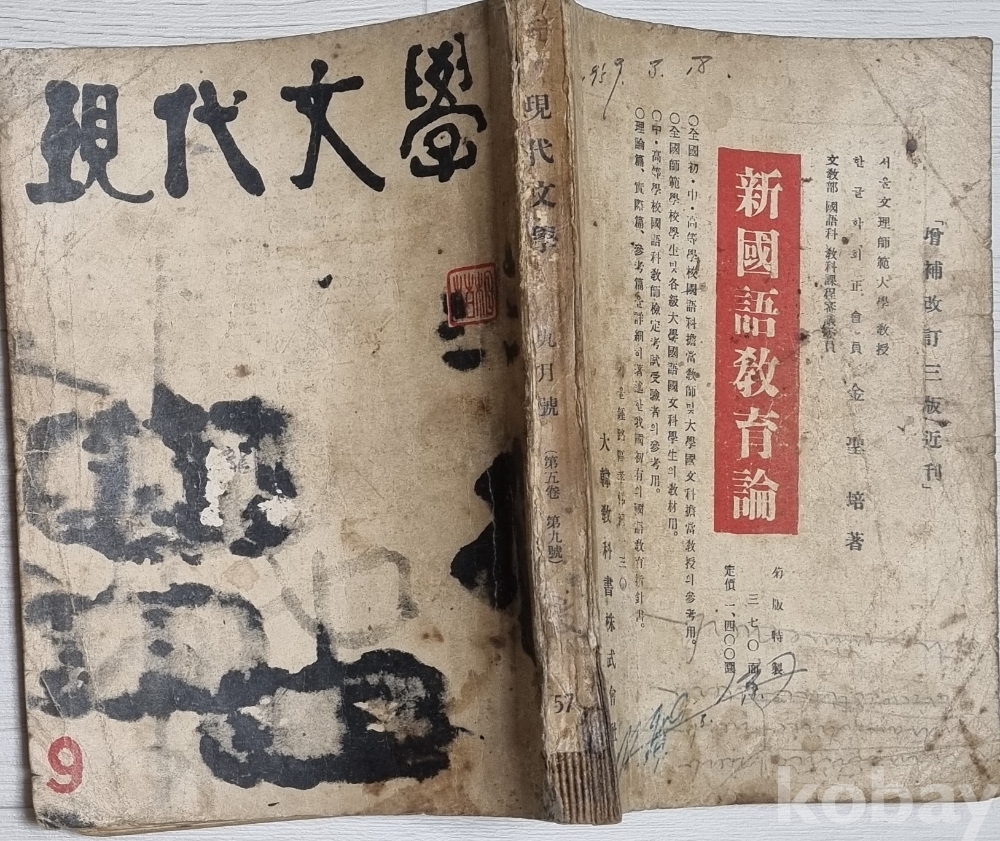 現代文學
9
現代文學
九月號
(第五卷 第九號)
57
1959. 3. 18
「增補改訂三版近刊」
서울文理師範大學 敎授
한글학회正會員
文敎部 國語科 敎科課程審議委員
金聖培著
新國語敎育論
菊版特製
三七〇面
定價 一、四〇〇圜
○全國初・中・高等學校國語科擔當敎師및大學國文科擔當敎授의參考用。
○全國師範學校學生및各級大學國語國文科學生의敎材用。
○中・高等學校國語科敎師檢定考試受驗者의參考用。
○理論篇、實際篇、參考篇으로詳細히著述한我國初有의國語敎育指針書。
大韓敎科書株式會
kobay